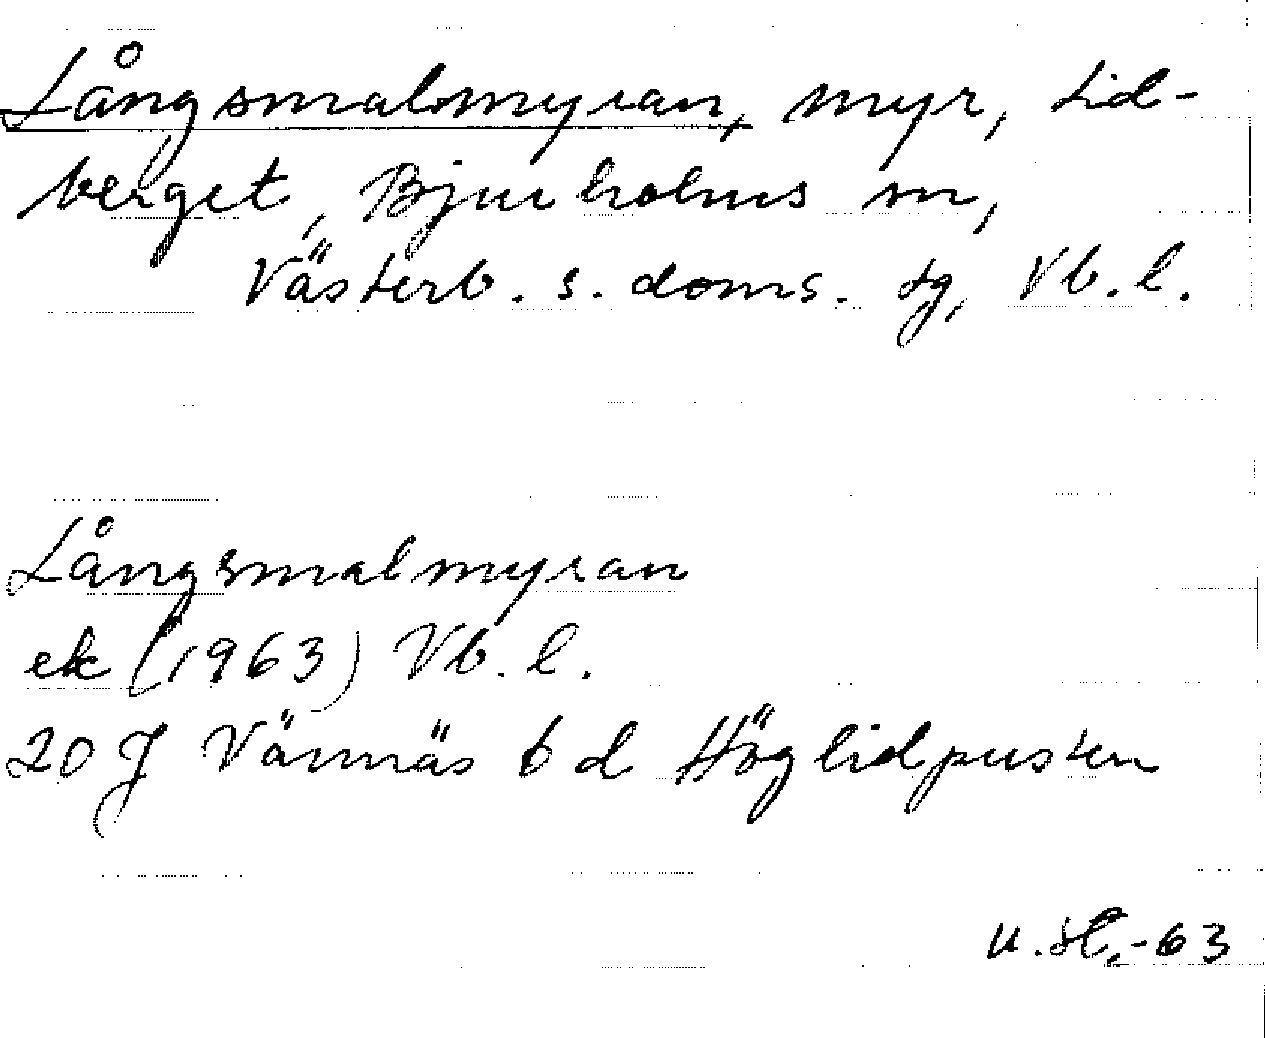 Långsmalmyran, myr, Lid-
berget, Bjurholms sn,
Västerb. s. doms. tg, Vb. l.
Långsmalmyran
ek (1963) Vb. l.
20 J Vännäs 6 d Höglidpusten
U.H.-63